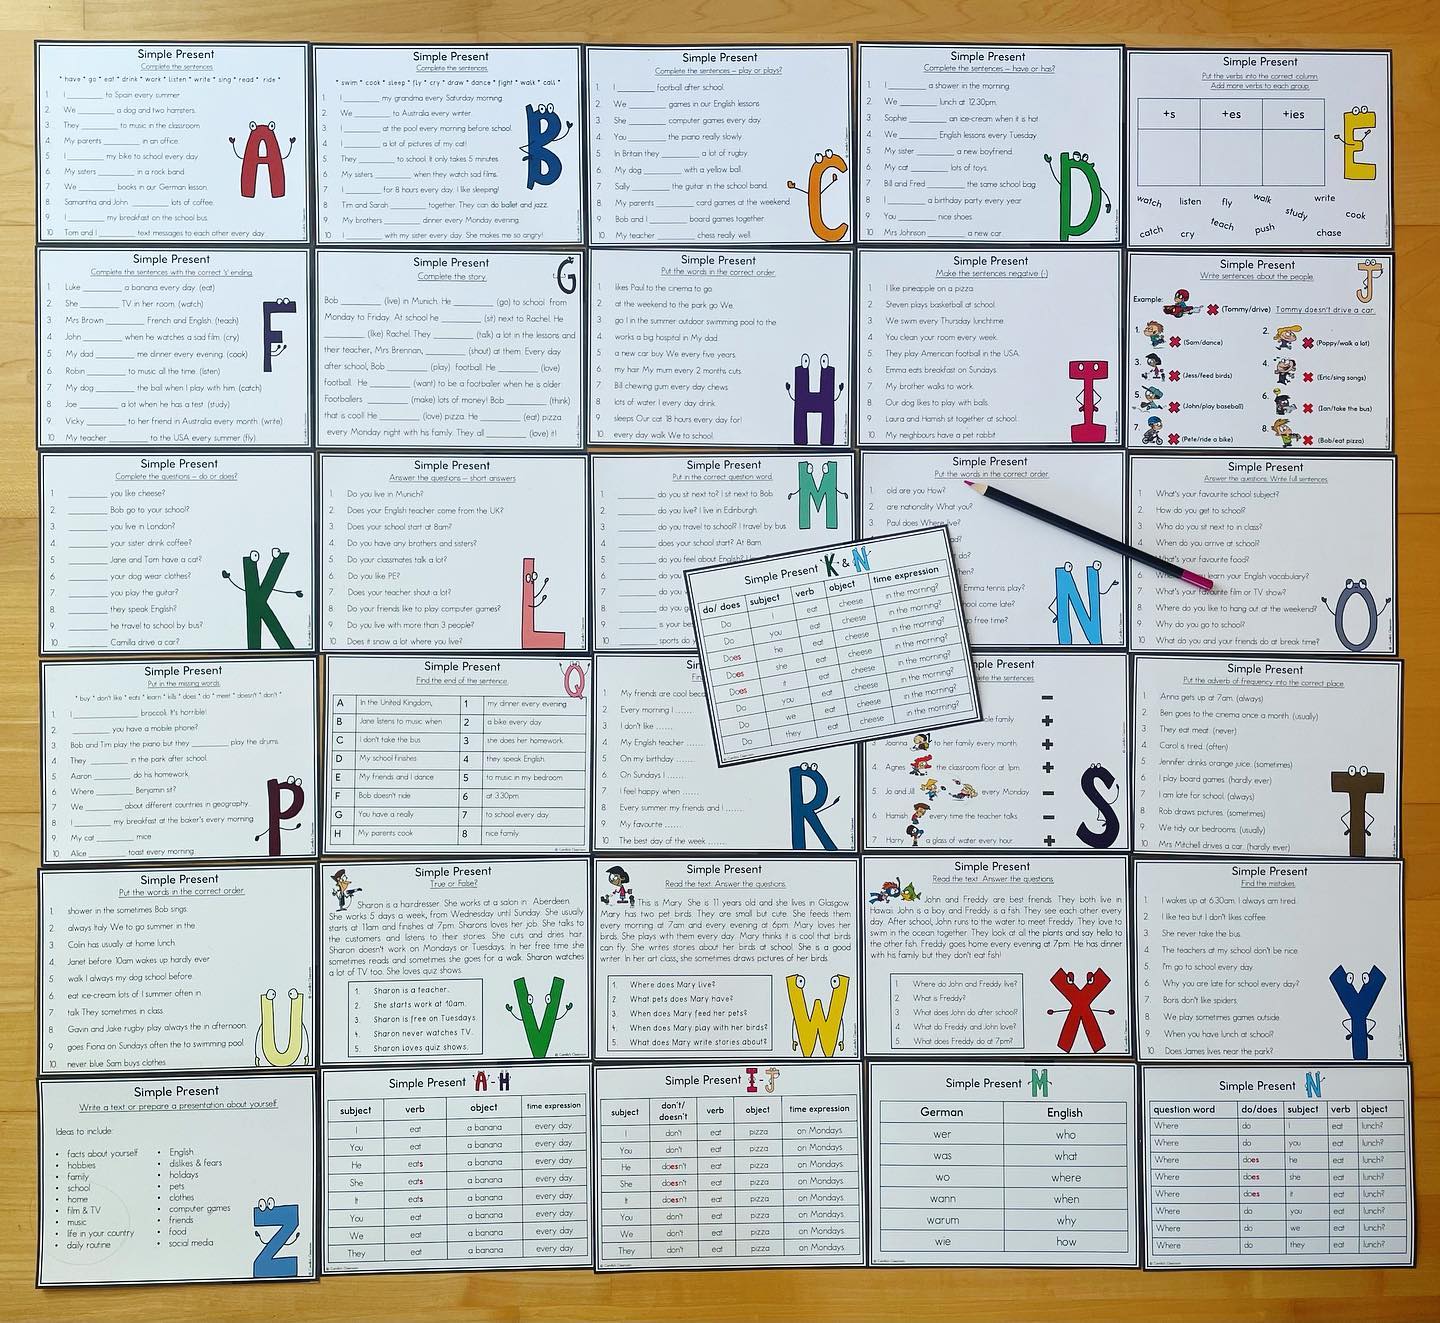 Simple Present
Complete the sentences.
* have * go * eat * drink * work * listen * write * sing * read * ride *
1. I ________ to Spain every summer.
2. We ________ a dog and two hamsters.
3. They ________ to music in the classroom.
4. My parents ________ in an office.
5. I ________ my bike to school every day.
6. My sisters ________ in a rock band.
7. We ________ books in our German lesson.
8. Samantha and John ________ lots of coffee.
9. I ________ my breakfast on the school bus.
10. Tom and I ________ text messages to each other every day.
A
Simple Present
Complete the sentences.
* swim * cook * sleep * fly * cry * draw * dance * fight * walk * call *
1. I ________ my grandma every Saturday morning.
2. We ________ to Australia every winter.
3. I ________ at the pool every morning before school.
4. I ________ a lot of pictures of my cat!
5. They ________ to school. It only takes 5 minutes.
6. My sisters ________ when they watch sad films.
7. I ________ for 8 hours every day. I like sleeping!
8. Tim and Sarah ________ together. They can do ballet and jazz.
9. My brothers ________ dinner every Monday evening.
10. I ________ with my sister every day. She makes me so angry!
B
Simple Present
Complete the sentences – play or plays?
1. I ________ football after school.
2. We ________ games in our English lessons
3. She ________ computer games every day.
4. You ________ the piano really slowly.
5. In Britain they ________ a lot of rugby.
6. My dog ________ with a yellow ball.
7. Sally ________ the guitar in the school band.
8. My parents ________ card games at the weekend.
9. Bob and I ________ board games together.
10. My teacher ________ chess really well.
C
Simple Present
Complete the sentences – have or has?
1. I ________ a shower in the morning.
2. We ________ lunch at 12.30pm.
3. Sophie ________ an ice-cream when it is hot.
4. We ________ English lessons every Tuesday.
5. My sister ________ a new boyfriend.
6. My cat ________ lots of toys.
7. Bill and Fred ________ the same school bag.
8. I ________ a birthday party every year.
9. You ________ nice shoes.
10. Mrs Johnson ________ a new car.
D
Simple Present
Put the verbs into the correct column.
Add more verbs to each group.
+s +es +ies
watch listen fly walk write
catch cry teach study push cook chase
E
Simple Present
Complete the sentences with the correct 's' ending.
1. Luke ________ a banana every day. (eat)
2. She ________ TV in her room. (watch)
3. Mrs Brown ________ French and English. (teach)
4. John ________ when he watches a sad film. (cry)
5. My dad ________ me dinner every evening. (cook)
6. Robin ________ to music all the time. (listen)
7. My dog ________ the ball when I play with him. (catch)
8. Joe ________ a lot when he has a test. (study)
9. Vicky ________ to her friend in Australia every month. (write)
10. My teacher ________ to the USA every summer. (fly)
F
Simple Present
Complete the story.
G
Bob ________ (live) in Munich. He ________ (go) to school from
Monday to Friday. At school he ________ (sit) next to Rachel. He
________ (like) Rachel. They ________ (talk) a lot in the lessons and
their teacher, Mrs Brennan, ________ (shout) at them. Every day
after school, Bob ________ (play) football. He ________ (love)
football. He ________ (want) to be a footballer when he is older.
Footballers ________ (make) lots of money! Bob ________ (think)
that is cool! He ________ (love) pizza. He ________ (eat) pizza
every Monday night with his family. They all ________ (love) it!
Simple Present
Put the words in the correct order.
1. likes Paul to the cinema to go.
2. at the weekend to the park go We.
3. go I in the summer outdoor swimming pool to the
4. works a big hospital in My dad
5. a new car buy We every five years.
6. my hair My mum every 2 months cuts.
7. Bill chewing gum every day chews
8. lots of water I every day drink.
9. sleeps Our cat 18 hours every day for!
10. every day walk We to school.
H
Simple Present
Make the sentences negative (-)
1. I like pineapple on a pizza.
2. Steven plays basketball at school.
3. We swim every Thursday lunchtime.
4. You clean your room every week.
5. They play American football in the USA.
6. Emma eats breakfast on Sundays.
7. My brother walks to work.
8. Our dog likes to play with balls.
9. Laura and Hamish sit together at school.
10. My neighbours have a pet rabbit.
I
Simple Present
Write sentences about the people.
J
Example:
(Tommy/drive) Tommy doesn't drive a car.
1. (Sam/dance) 2. (Poppy/walk a lot)
3. (Jess/feed birds) 4. (Eric/sing songs)
5. (John/play baseball) 6. (Ian/take the bus)
7. (Pete/ride a bike) 8. (Bob/eat pizza)
Simple Present
Complete the questions – do or does?
1. ________ you like cheese?
2. ________ Bob go to your school?
3. ________ you live in London?
4. ________ your sister drink coffee?
5. ________ Jane and Tom have a cat?
6. ________ your dog wear clothes?
7. ________ you play the guitar?
8. ________ they speak English?
9. ________ he travel to school by bus?
10. ________ Camilla drive a car?
K
Simple Present
Answer the questions – short answers
1. Do you live in Munich?
2. Does your English teacher come from the UK?
3. Does your school start at 8am?
4. Do you have any brothers or sisters?
5. Do your classmates talk a lot?
6. Do you like PE?
7. Does your teacher shout a lot?
8. Do your friends like to play computer games?
9. Do you live with more than 3 people?
10. Does it snow a lot where you live?
L
Simple Present
Put in the correct question word.
M
1. ________ do you sit next to? I sit next to Bob.
2. ________ do you live? I live in Edinburgh.
3. ________ do you travel to school? I travel by bus
4. ________ does your school start? At 8am.
5. ________ do you feel about English?
6. ________ do you
7. ________ do you
8. ________ do you
9. ________ is your
10. ________ sports do
Simple Present
Put the words in the correct order.
1. old are you How?
2. are nationality What you?
3. Paul does Where live?
Emma tennis play?
school come late?
free time?
N
Simple Present
Answer the questions. Write full sentences.
1. What's your favourite school subject?
2. How do you get to school?
3. Who do you sit next to in class?
4. When do you arrive at school?
5. What's your favourite food?
6. learn your English vocabulary?
7. What's your favourite film or TV show?
8. Where do you like to hang out at the weekend?
9. Why do you go to school?
10. What do you and your friends do at break time?
O
Simple Present K & N
do/ does subject verb object time expression
Do I eat cheese in the morning?
Do you eat cheese in the morning?
Does he eat cheese in the morning?
Does she eat cheese in the morning?
Does it eat cheese in the morning?
Do you eat cheese in the morning?
Do we eat cheese in the morning?
Do they eat cheese in the morning?
Simple Present
Put in the missing words.
* buy * don't like * eats * learn * kills * does * do * meet * doesn't * don't *
1. I ________ broccoli. It's horrible!
2. ________ you have a mobile phone?
3. Bob and Tim play the piano but they ________ play the drums.
4. They ________ in the park after school.
5. Aaron ________ do his homework.
6. Where ________ Benjamin sit?
7. We ________ about different countries in geography.
8. I ________ my breakfast at the baker's every morning.
9. My cat ________ mice.
10. Alice ________ toast every morning.
P
Simple Present
Find the end of the sentence.
Q
A In the United Kingdom, 1 my dinner every evening.
B Jane listens to music when 2 a bike every day.
C I don't take the bus 3 she does her homework.
D My school finishes 4 they speak English.
E My friends and I dance 5 to music in my bedroom
F Bob doesn't ride 6 at 3.30pm.
G You have a really 7 to school every day.
H My parents cook 8 nice family.
1. My friends are cool
2. Every morning I ……
3. I don't like ……
4. My English teacher ……
5. On my birthday ……
6. On Sundays I ……
7. I feel happy when ……
8. Every summer my friends and I ……
9. My favourite ……
10. The best day of the week ……
R
Simple Present
family
3. Joanna to her family every month. +
4. Agnes the classroom floor at 1pm. +
5. Jo and Jill every Monday −
6. Hamish every time the teacher talks −
7. Harry a glass of water every hour +
S
Simple Present
Put the adverb of frequency into the correct place.
1. Anna gets up at 7am. (always)
2. Ben goes to the cinema once a month. (usually)
3. They eat meat. (never)
4. Carol is tired. (often)
5. Jennifer drinks orange juice. (sometimes)
6. I play board games. (hardly ever)
7. I am late for school. (always)
8. Rob draws pictures. (sometimes)
9. We tidy our bedrooms. (usually)
10. Mrs Mitchell drives a car. (hardly ever)
T
Simple Present
Put the words in the correct order.
1. shower in the sometimes Bob sings.
2. always Italy We to go summer in the
3. Colin has usually at home lunch.
4. Janet before 10am wakes up hardly ever
5. walk I always my dog school before.
6. eat ice-cream lots of I summer often in.
7. talk They sometimes in class.
8. Gavin and Jake rugby play always the in afternoon.
9. goes Fiona on Sundays often the to swimming pool.
10. never blue Sam buys clothes
U
Simple Present
True or False?
Sharon is a hardresser. She works at a salon in Aberdeen.
She works 5 days a week, from Wednesday until Sunday. She usually
starts at 11am and finishes at 7pm. Sharons loves her job. She talks to
the customers and listens to their stories. She cuts and dries hair.
Sharon doesn't work on Mondays or Tuesdays. In her free time she
sometimes reads and sometimes she goes for a walk. Sharon watches
a lot of TV too. She loves quiz shows.
1. Sharon is a teacher.
2. She starts work at 10am.
3. Sharon is free on Tuesdays
4. Sharon never watches TV.
5. Sharon loves quiz shows.
V
Simple Present
Read the text. Answer the questions.
This is Mary. She is 11 years old and she lives in Glasgow.
Mary has two pet birds. They are small but cute. She feeds them
every morning at 7am and every evening at 6pm. Mary loves her
birds. She plays with them every day. Mary thinks it is cool that birds
can fly. She writes stories about her birds at school. She is a good
writer. In her art class, she sometimes draws pictures of her birds.
1. Where does Mary live?
2. What pets does Mary have?
3. When does Mary feed her pets?
4. When does Mary play with her birds?
5. What does Mary write stories about?
W
Simple Present
Read the text. Answer the questions.
John and Freddy are best friends. They both live in
Hawaii. John is a boy and Freddy is a fish. They see each other every
day. After school, John runs to the water to meet Freddy. They love to
swim in the ocean together. They look at all the plants and say hello to
the other fish. Freddy goes home every evening at 7pm. He has dinner
with his family but they don't eat fish!
1. Where do John and Freddy live?
2. What is Freddy?
3. What does John do after school?
4. What do Freddy and John love?
5. What does Freddy do at 7pm?
X
Simple Present
Find the mistakes.
1. I wakes up at 6.30am. I always am tired.
2. I like tea but I don't likes coffee.
3. She never take the bus.
4. The teachers at my school don't be nice.
5. I'm go to school every day.
6. Why you are late for school every day?
7. Boris don't like spiders.
8. We play sometimes games outside.
9. When you have lunch at school?
10. Does James lives near the park?
Y
Simple Present
Write a text or prepare a presentation about yourself.
Ideas to include:
• facts about yourself • English
• hobbies • dislikes & fears
• family • holidays
• school • pets
• home • clothes
• film & TV • computer games
• music • friends
• life in your country • food
• daily routine • social media
Z
Simple Present A-H
subject verb object time expression
I eat a banana every day.
You eat a banana every day.
He eats a banana every day.
She eats a banana every day.
It eats a banana every day.
You eat a banana every day.
We eat a banana every day.
They eat a banana every day.
Simple Present I-J
subject don't/ doesn't verb object time expression
I don't eat pizza on Mondays.
You don't eat pizza on Mondays.
He doesn't eat pizza on Mondays.
She doesn't eat pizza on Mondays.
It doesn't eat pizza on Mondays.
You don't eat pizza on Mondays.
We don't eat pizza on Mondays.
They don't eat pizza on Mondays.
Simple Present M
German English
wer who
was what
wo where
wann when
warum why
wie how
Simple Present N
question word do/does subject verb object
Where do I eat lunch?
Where do you eat lunch?
Where does he eat lunch?
Where does she eat lunch?
Where does it eat lunch?
Where do you eat lunch?
Where do we eat lunch?
Where do they eat lunch?